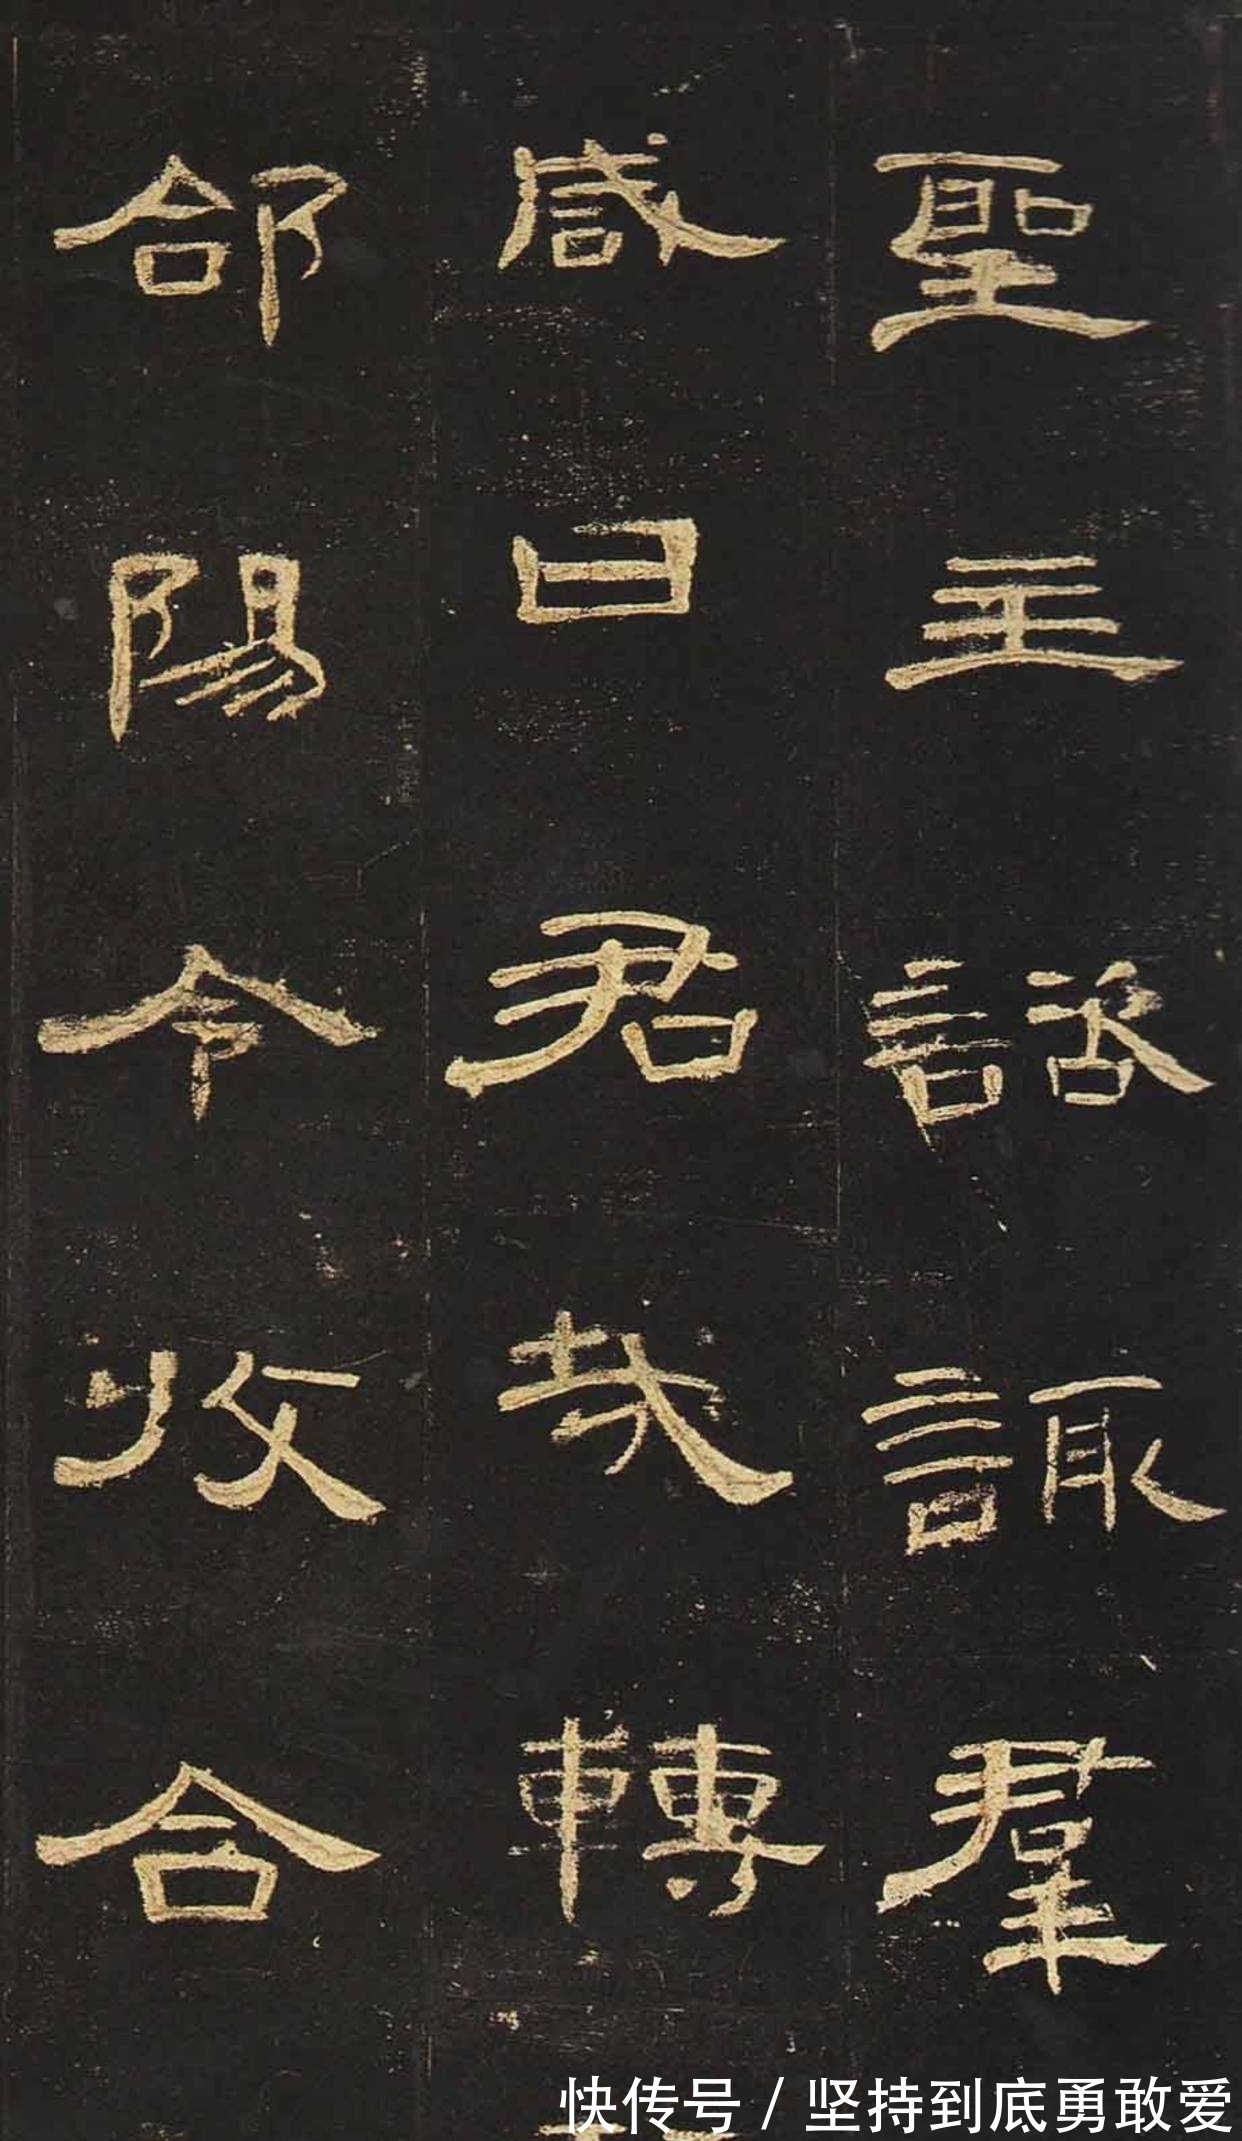 聖主諮諏羣
咸曰君哉轉
郃陽令收合
快传号/坚持到底勇敢爱